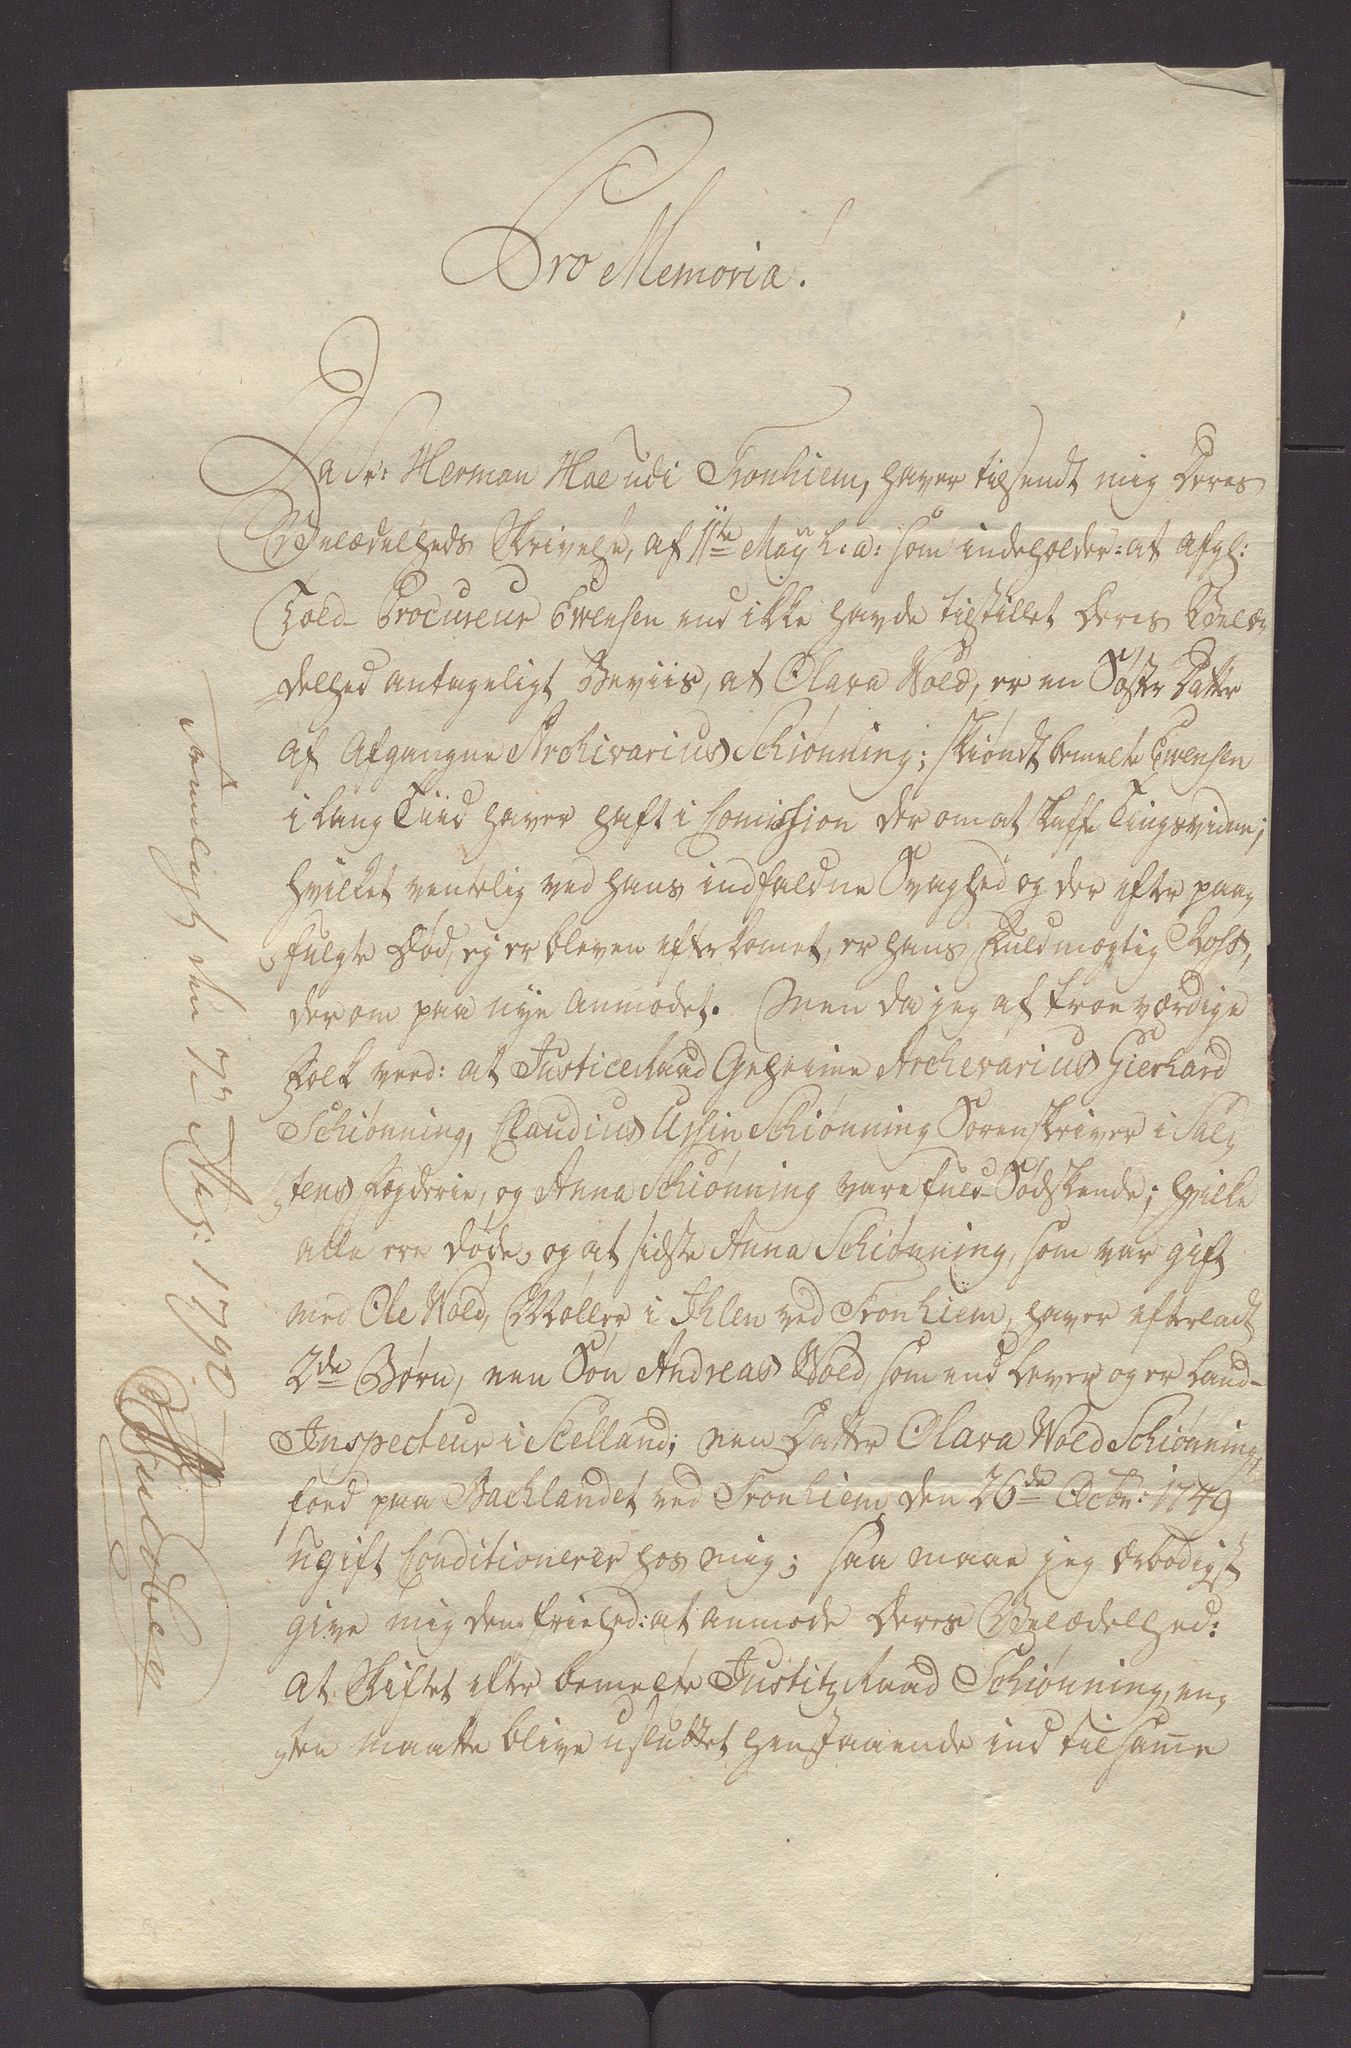 Pro Memoria!
Da Sr: Herman Hoe udi Tronhiem, haver tilsendt mig Deres
Velædelheds Skrivelse, af 11te Maÿ h: a: som indeholder: at afgl:
Told Procureur Evensen end ikke havde tilstillet Deres Velæ-
delhed antageligt Beviis, at Olava Wold, er en Søster Datter
af Afgangne Archivarius Schiønning; skiøndt bemelte Evensen
i lang Tiid haver haft i Comission der om at skaffe Tingsvidne;
hvilket ventelig ved hans indfaldne Svaghed og der efter paa-
fulgte Død, ej er bleven efterkomet, er hans Fuldmægtig Ross,
der om paa nye anmodet. Men da jeg af troeværdige
Folk veed: at Justice Raad Geheime Archevarius Gierhard
Schiønning, Claudius Ussin Schiønning Sorenskriver i Sal-
tens Fogderie, og Anna Schiønning vare fuld Sødskende; hvilke
alle ere døde, og at sidste Anna Schiønning, som var gift
med Ole Wold, Møller i Ihlen ved Tronhiem, haver efterladt
2de Børn, een Søn Andreas Wold, som end lever og er Land-
Inspecteur i Seelland; een Datter Olava Wold Schiønning,
fød paa Backlandet ved Tronhiem den 26de Octbr: 1749
ugift Conditionerer hos mig; saa maae jeg ærbødigst
give mig den Friehed: at anmode Deres Velædelhed:
at Skiftet efter bemelte Justitz Raad Schiønning, en-
ten maatte blive usluttet henstaaende ind til samme
Fremlagt den 7de 1790